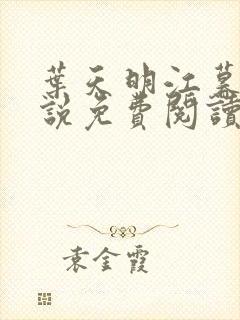 葉天明江慕
說免費閱讀
袁金霞